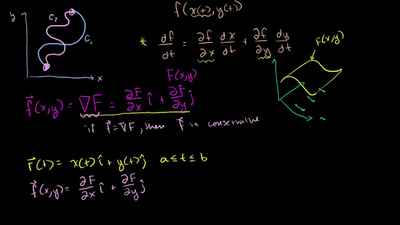 f(x(t), y(t))
y
C₂
C₁
x
* df/dt = ∂f/∂x dx/dt + ∂f/∂y dy/dt
F(x,y)
F(x,y)
f⃗(x,y) = ∇F = ∂F/∂x î + ∂F/∂y ĵ
if f⃗ = ∇F, then f⃗ is conservative
r⃗(t) = x(t) î + y(t) ĵ a ≤ t ≤ b
f⃗(x,y) = ∂F/∂x î + ∂F/∂y ĵ